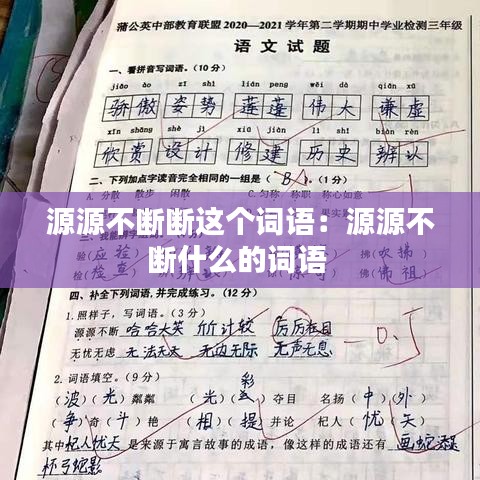 蒲公英中部教育联盟2020—2021学年第二学期期中学业检测三年级
语文试题
一、看拼音写词语。(10分)
jiāo ào zī shì lián peng wěi dà qiān xū
骄傲 姿势 莲蓬 伟大 谦虚
xīn shǎng shè jì xiū jiàn lì shǐ biàn rèn
欣赏 设计 修建 历史 辨认
二、下列加点字读音完全相同的一组是(B)。(1分)
A.分散 散步 闲散 C.匀称 称职 称心如意
源源不断断这个词语：源源不
断什么的词语
四、补全下列词语,并完成练习。(12分)
1.照样子,写词语。(3分)
源源不断 哈哈大笑 斤斤计较 历历在目
无忧无虑 无法无天 无边无际 无声无息
-0.5
2.词语填空。(9分)
(波)(光)粼粼 (光)(彩)夺目 名扬(中)(外)
(争)奇(斗)艳 (相)(提)并论 杞人(忧)(天)
其中杞人忧天是来源于寓言故事的成语,像这样的成语还有 画蛇添足
杯弓蛇影